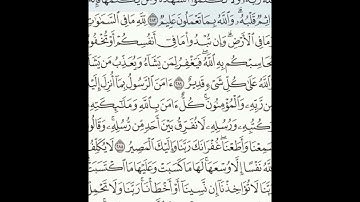 ءَاثِمٌ قَلْبُهُۥ ۗ وَٱللَّهُ بِمَا تَعْمَلُونَ عَلِيمٌ ۝ لِّلَّهِ مَا فِى ٱلسَّمَٰوَٰتِ
وَمَا فِى ٱلْأَرْضِ ۗ وَإِن تُبْدُوا۟ مَا فِىٓ أَنفُسِكُمْ أَوْ تُخْفُوهُ
يُحَاسِبْكُم بِهِ ٱللَّهُ ۖ فَيَغْفِرُ لِمَن يَشَآءُ وَيُعَذِّبُ مَن يَشَآءُ ۗ
وَٱللَّهُ عَلَىٰ كُلِّ شَىْءٍ قَدِيرٌ ۝ ءَامَنَ ٱلرَّسُولُ بِمَآ أُنزِلَ إِلَيْهِ
مِن رَّبِّهِۦ وَٱلْمُؤْمِنُونَ ۚ كُلٌّ ءَامَنَ بِٱللَّهِ وَمَلَٰٓئِكَتِهِۦ
وَكُتُبِهِۦ وَرُسُلِهِۦ لَا نُفَرِّقُ بَيْنَ أَحَدٍ مِّن رُّسُلِهِۦ ۚ وَقَالُوا۟
سَمِعْنَا وَأَطَعْنَا ۖ غُفْرَانَكَ رَبَّنَا وَإِلَيْكَ ٱلْمَصِيرُ ۝ لَا يُكَلِّفُ
ٱللَّهُ نَفْسًا إِلَّا وُسْعَهَا ۚ لَهَا مَا كَسَبَتْ وَعَلَيْهَا مَا ٱكْتَسَبَتْ ۗ
رَبَّنَا لَا تُؤَاخِذْنَآ إِن نَّسِينَآ أَوْ أَخْطَأْنَا ۚ رَبَّنَا وَلَا تَحْمِلْ